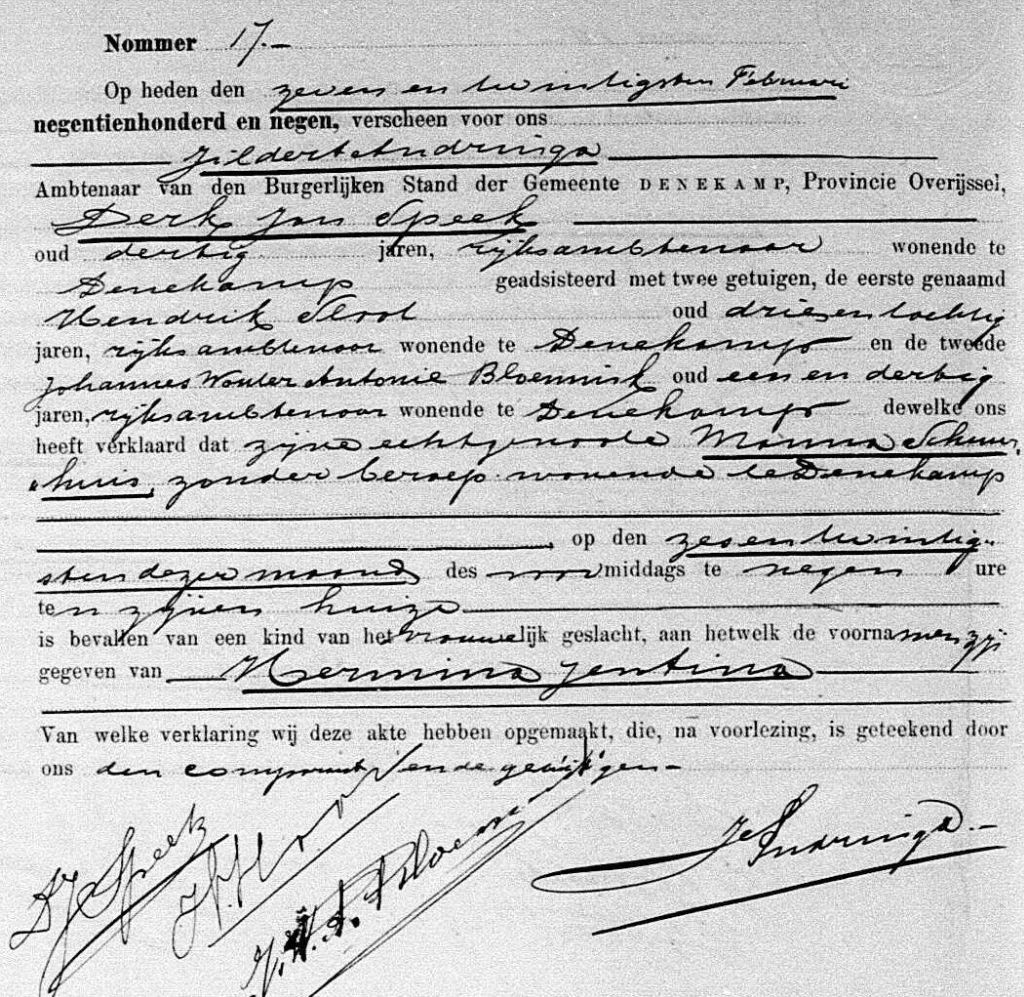 Nommer 17.-
Op heden den zeven en twintigsten Februari
negentienhonderd en negen, verscheen voor ons
Jildert Andringa
Ambtenaar van den Burgerlijken Stand der Gemeente DENEKAMP, Provincie Overijssel,
Derk Jan Speek
oud dertig jaren, rijksambtenaar wonende te
Denekamp geadsisteerd met twee getuigen, de eerste genaamd
Hendrik oud drie en
jaren, rijksambtenaar wonende te Denekamp en de tweede
Johannes Wouter Antonie oud een en dertig
jaren, rijksambtenaar wonende te Denekamp dewelke ons
heeft verklaard dat zijne echtgenoote Manna Schuur,
huis, zonder beroep wonende te Denekamp
op den zesentwintig-
sten dezer maand des voormiddags te negen ure
ten zijnen huize
is bevallen van een kind van het vrouwelijk geslacht, aan hetwelk de voornamen zijn
gegeven van Hermina Jentina
Van welke verklaring wij deze akte hebben opgemaakt, die, na voorlezing, is geteekend door
ons den comparant en de getuigen.-
DJ Speek
J. W. A.
J Andringa.-